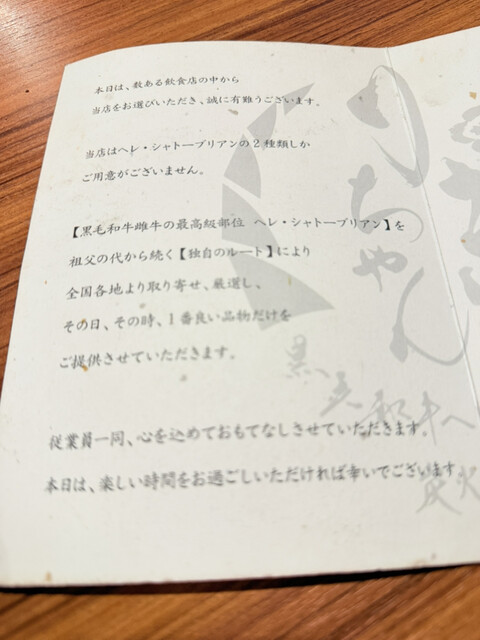 本日は、数ある飲食店の中から
当店をお選びいただき、誠に有難うございます。
当店はヘレ・シャトーブリアンの2種類しか
ご用意がございません。
【黒毛和牛雌牛の最高級部位 ヘレ・シャトーブリアン】を
祖父の代から続く【独自のルート】により
全国各地より取り寄せ、厳選し、
その日、その時、1番良い品物だけを
ご提供させていただきます。
従業員一同、心を込めておもてなしさせていただきます。
本日は、楽しい時間をお過ごしいただければ幸いでございます
りちゃん